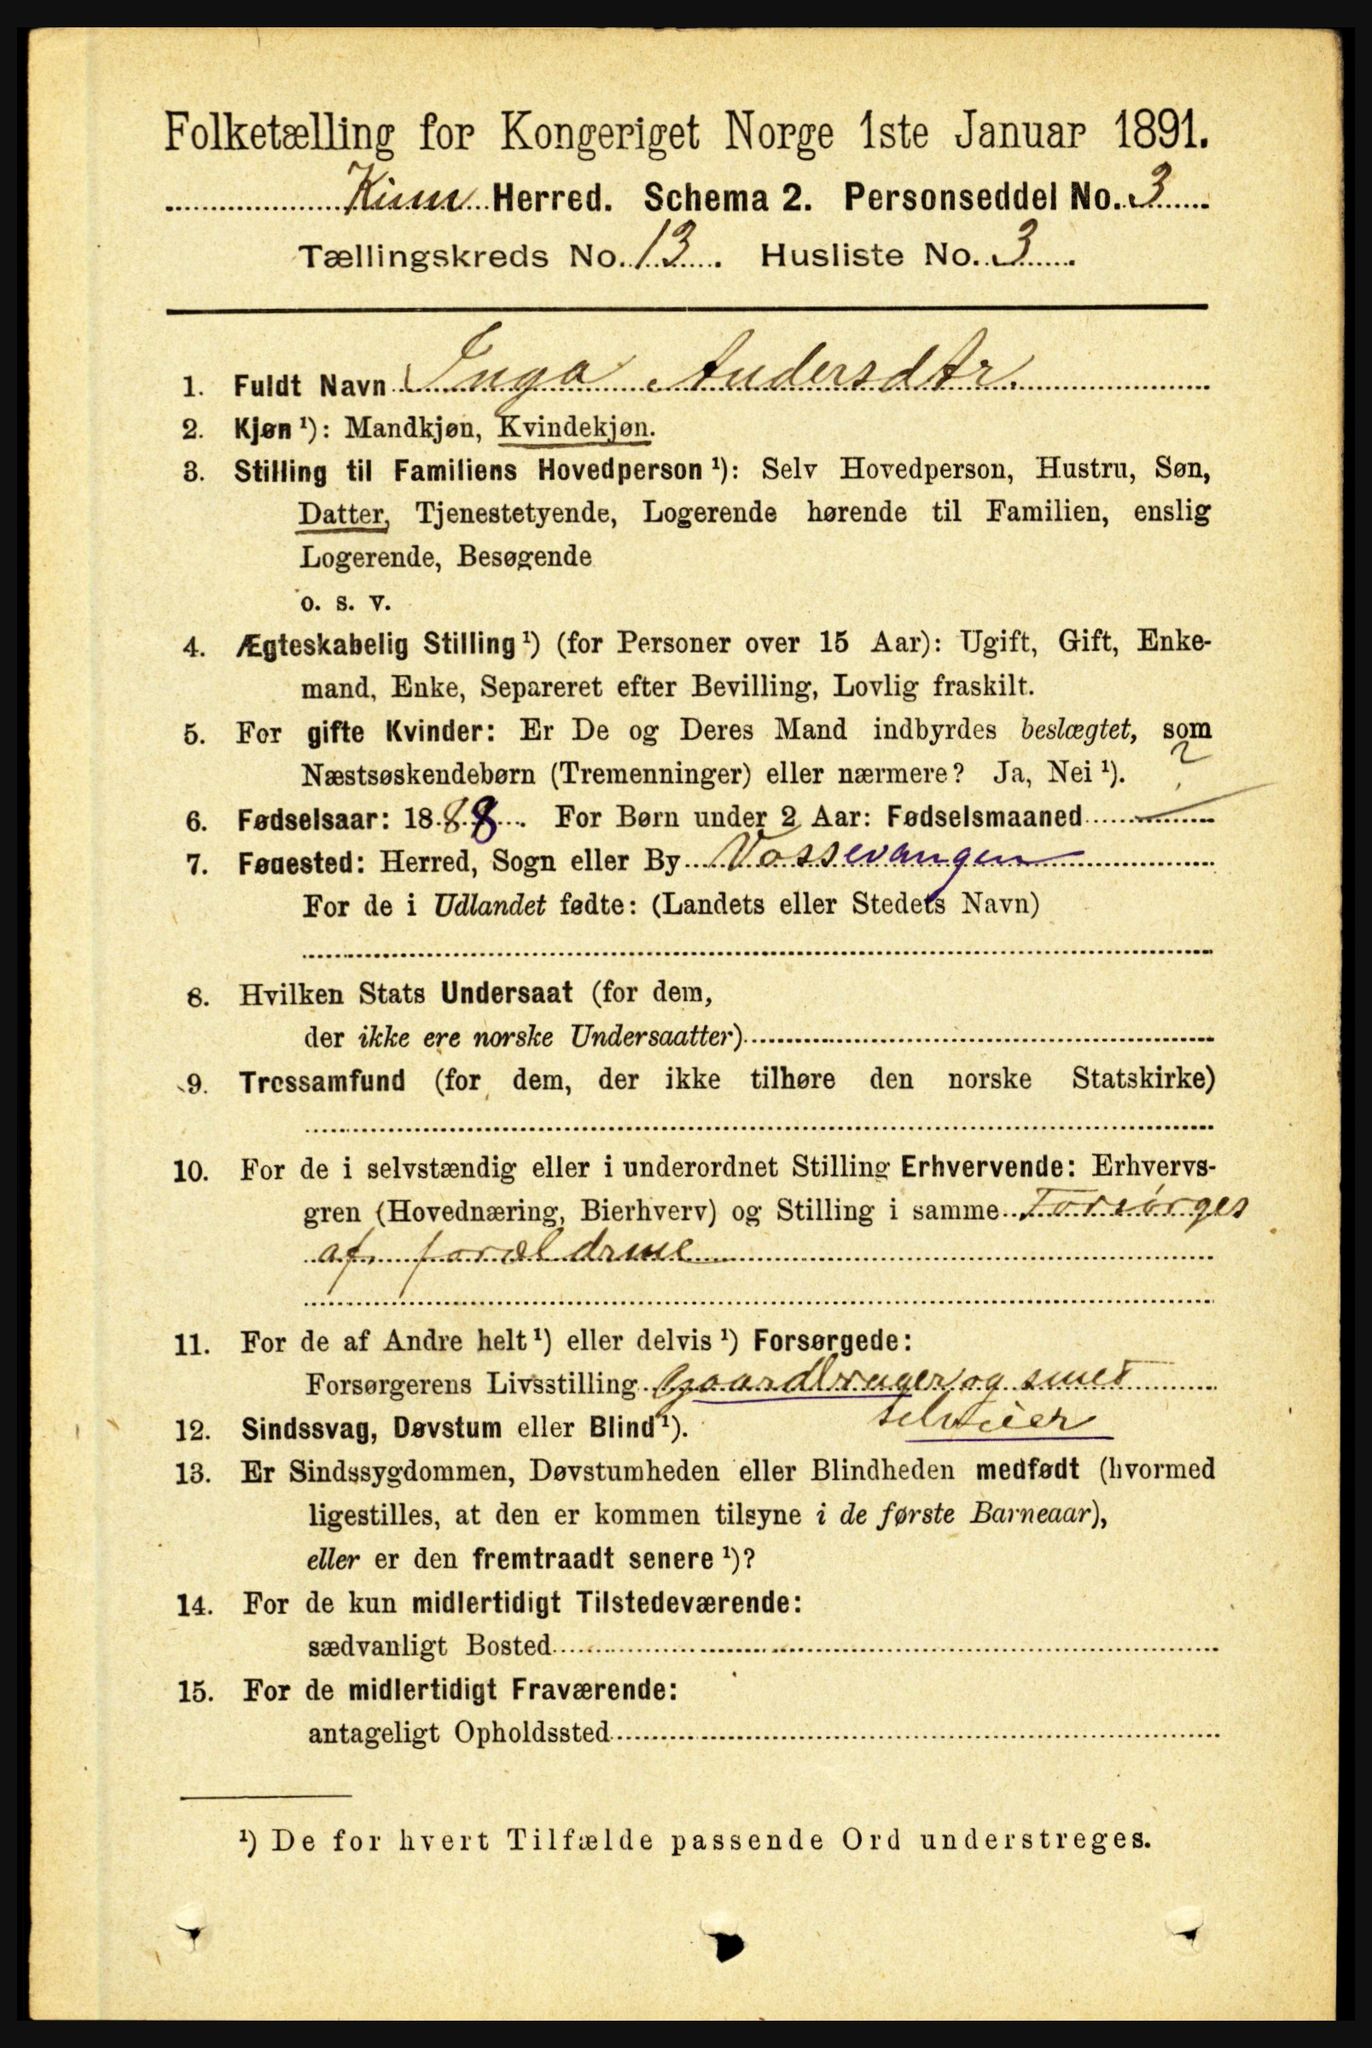 Folketælling for Kongeriget Norge 1ste Januar 1891.
Kinn Herred. Schema 2. Personseddel No. 3
Tællingskreds No. 13. Husliste No. 3
1. Fuldt Navn Inga Andersdtr.
2. Kjøn ¹): Mandkjøn, Kvindekjøn.
3. Stilling til Familiens Hovedperson ¹): Selv Hovedperson, Hustru, Søn,
Datter, Tjenestetyende, Logerende hørende til Familien, enslig
Logerende, Besøgende
o. s. v.
4. Ægteskabelig Stilling ¹) (for Personer over 15 Aar): Ugift, Gift, Enke-
mand, Enke, Separeret efter Bevilling, Lovlig fraskilt.
5. For gifte Kvinder: Er De og Deres Mand indbyrdes beslægtet, som
Næstsøskendebørn (Tremenninger) eller nærmere? Ja, Nei ¹). ?
6. Fødselsaar: 1888. For Børn under 2 Aar: Fødselsmaaned
7. Føuested: Herred, Sogn eller By Vossevangen
For de i Udlandet fødte: (Landets eller Stedets Navn)
8. Hvilken Stats Undersaat (for dem,
der ikke ere norske Undersaatter)
9. Trossamfund (for dem, der ikke tilhøre den norske Statskirke)
10. For de i selvstændig eller i underordnet Stilling Erhvervende: Erhvervs-
gren (Hovednæring, Bierhverv) og Stilling i samme Forsørges
af forældrene
11. For de af Andre helt ¹) eller delvis ¹) Forsørgede:
Forsørgerens Livsstilling Gaardbruger og smed
selveier
12. Sindssvag, Døvstum eller Blind ¹).
13. Er Sindssygdommen, Døvstumheden eller Blindheden medfødt (hvormed
ligestilles, at den er kommen tilsyne i de første Barneaar),
eller er den fremtraadt senere ¹)?
14. For de kun midlertidigt Tilstedeværende:
sædvanligt Bosted
15. For de midlertidigt Fraværende:
antageligt Opholdssted
¹) De for hvert Tilfælde passende Ord understreges.